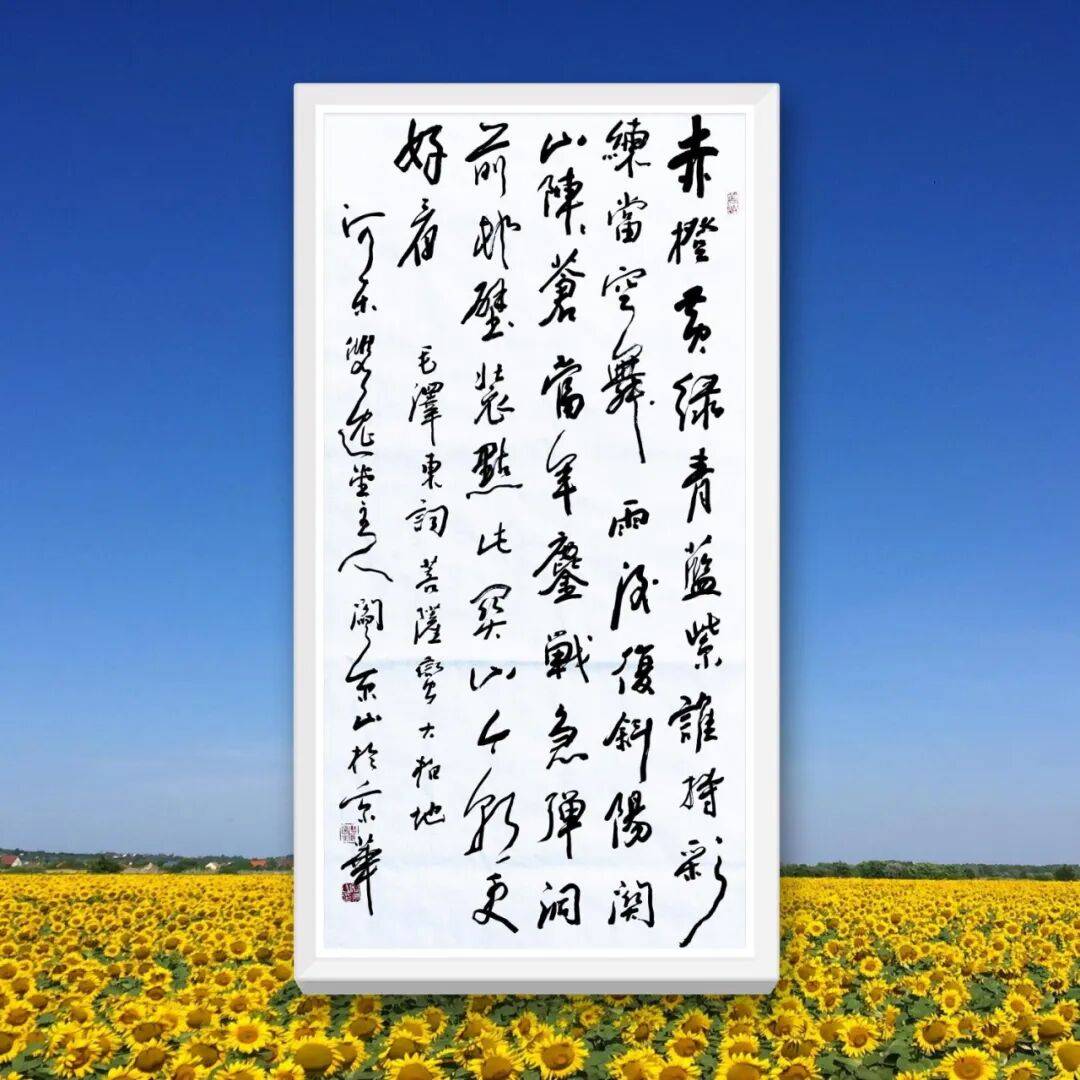 赤橙黄緑青藍紫誰持彩
練當空舞雨後復斜陽関
山陣々蒼當年鏖戦急弾洞
前邨壁装點此関山今朝更
好看 毛澤東詞菩薩蠻大柏地
河東 主人閻京山於京華